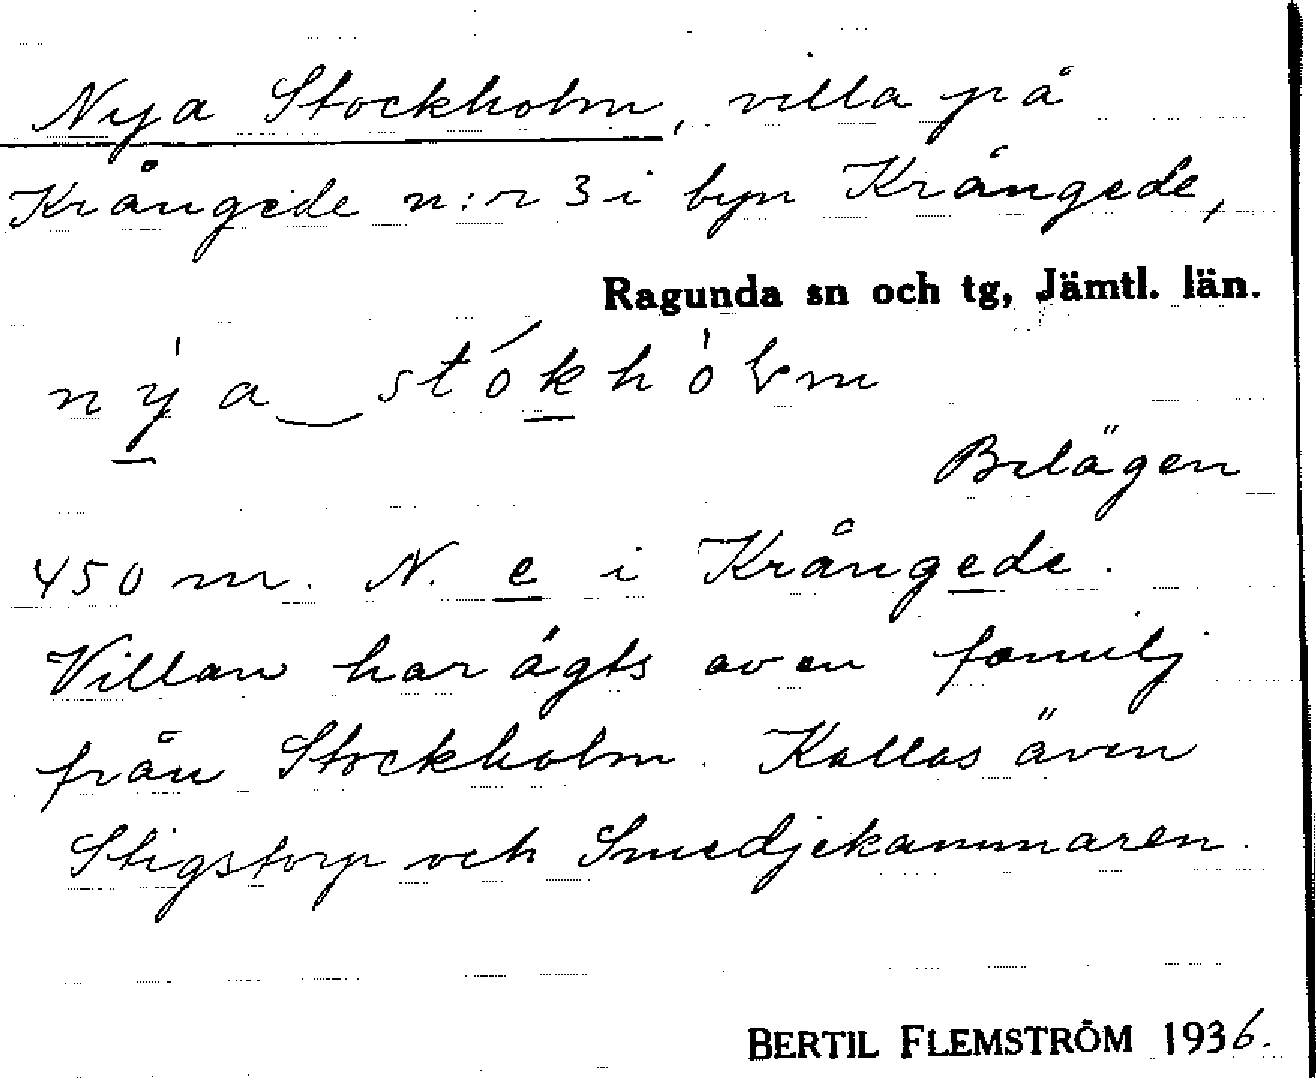 Nya Stockholm, villa på
Krångede n:r 3 i byn Krångede,
Ragunda sn och tg, Jämtl. län.
nýa stókhòlm
Belägen
450 m. N. e i Krångede.
Villan har ägts av en familj
från Stockholm. Kallas även
Stigstorp och Smedjekammaren.
BERTIL FLEMSTRÖM 1936.